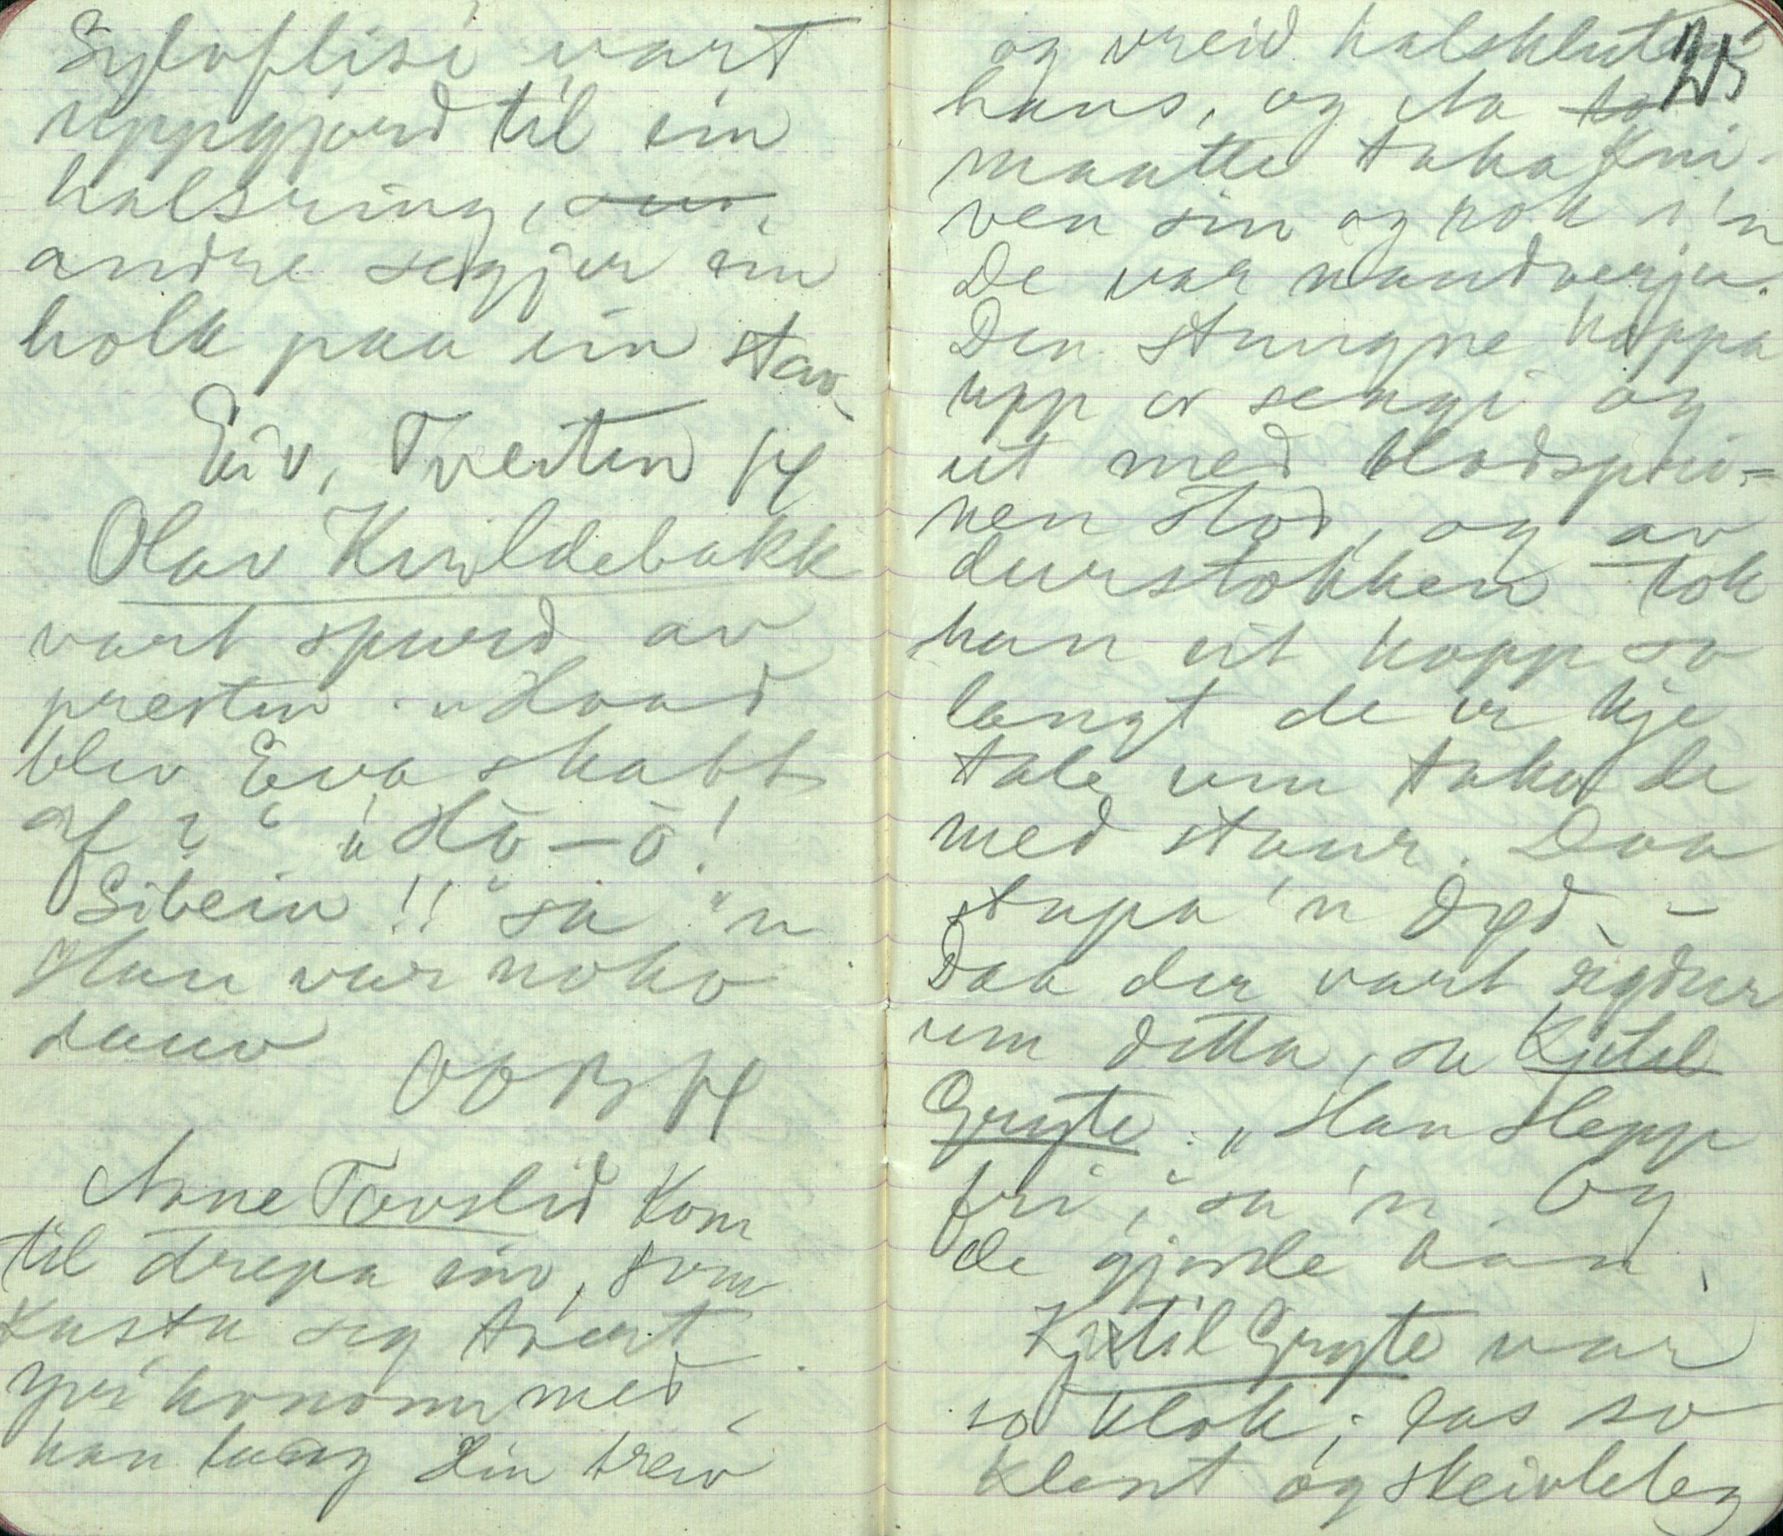 Sylvflisi vart
uppgjord til ein
halsring, som,
andre segjer ein
holk paa ein stav
Eiv, Tveiten H
Olav Kvildebakk
vart spurd av
presten „Hvad
blev Eva skabt
af?“ „Hò–ò!
Sibein!!“ sa 'n
Han var noko
dauv
OOB H
Arne Tovslid kom
til drepa ein, som
kasta seg tvert
yvi honom med
han laag Hin treiv
25
og vreid halskluten
hans, og Aa
maatte taka kni-
ven sin og rok i'n
De var naudverju.
Den stungne hoppa
upp or sengi og
ut med blodspru-
nen stod, og av
durstokken tok
han eit hopp so
langt de er kje
tale um taka de
med staur. Daa
stupa 'n død. –
Daa der vart rødur
um detta, sa Kjetil
Gryte: „Han slepp
fri,“ sa 'n. Og
de gjorde han.
Kjetil Gryte var
so klok; las so
klent og skeivleleg